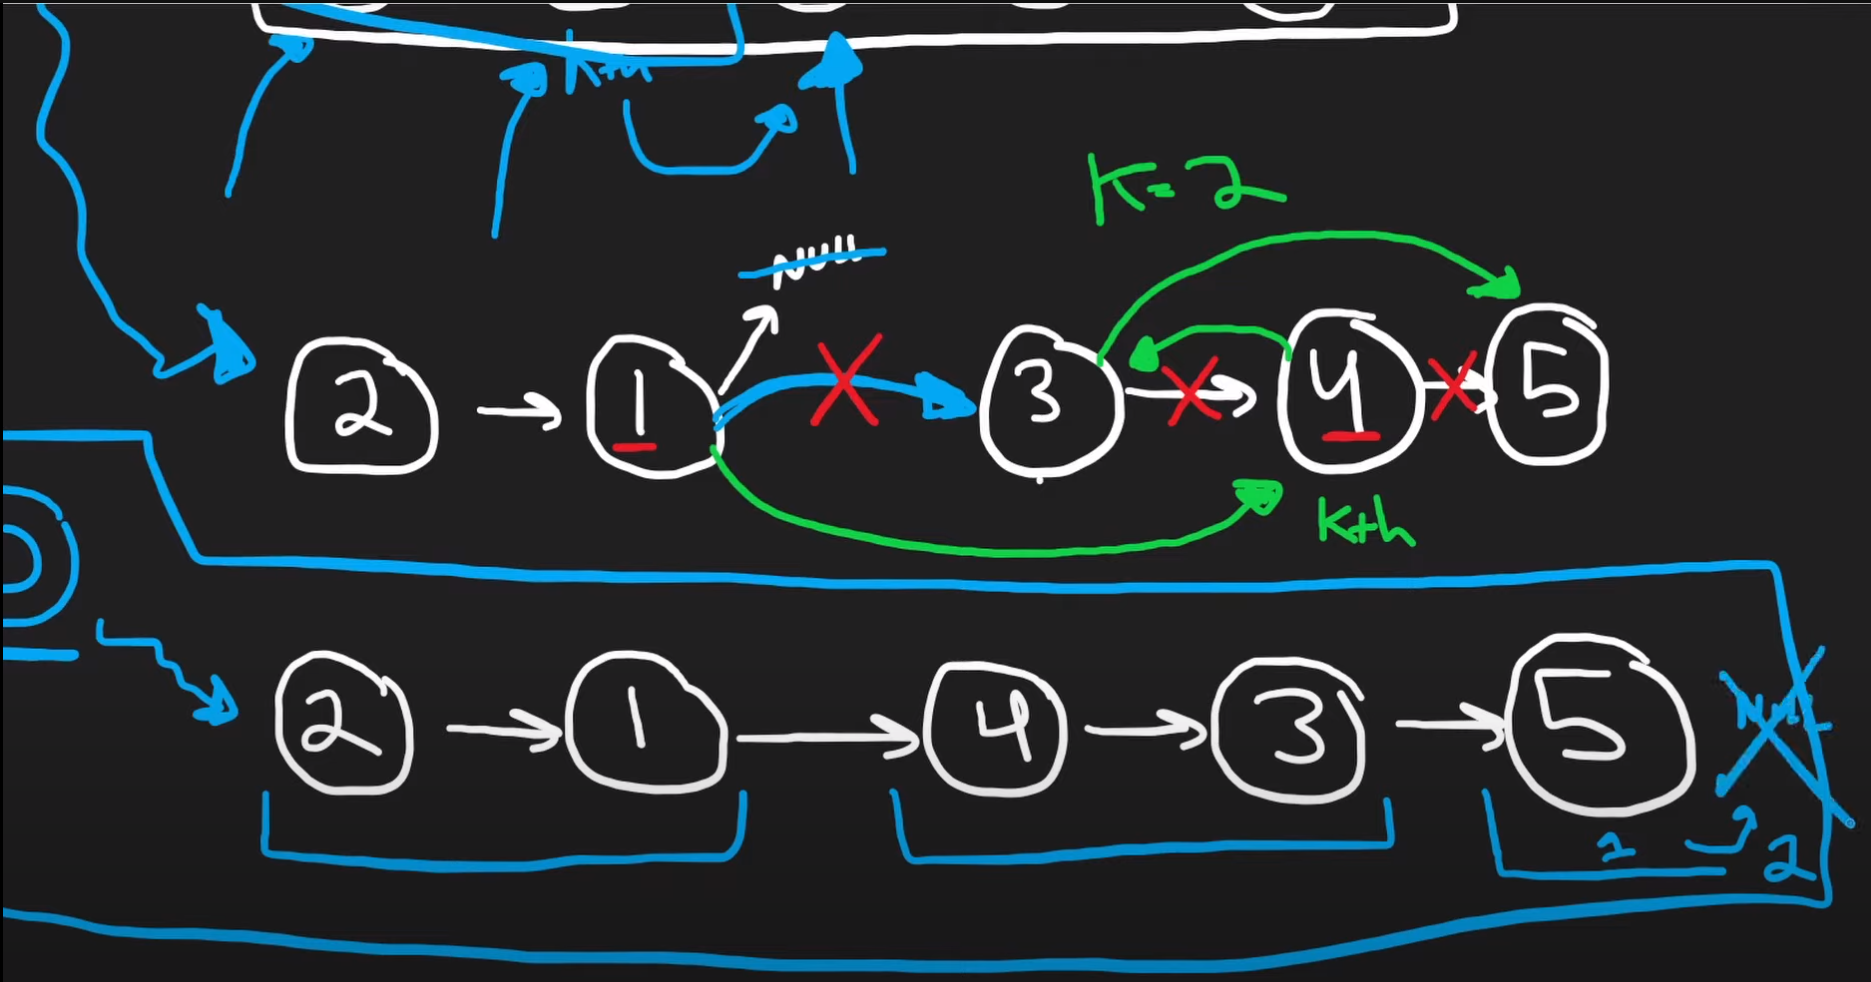 K+h
K=2
NULL
2 1 3 4 5
K+h
2 1 4 3 5
NULL
1 2